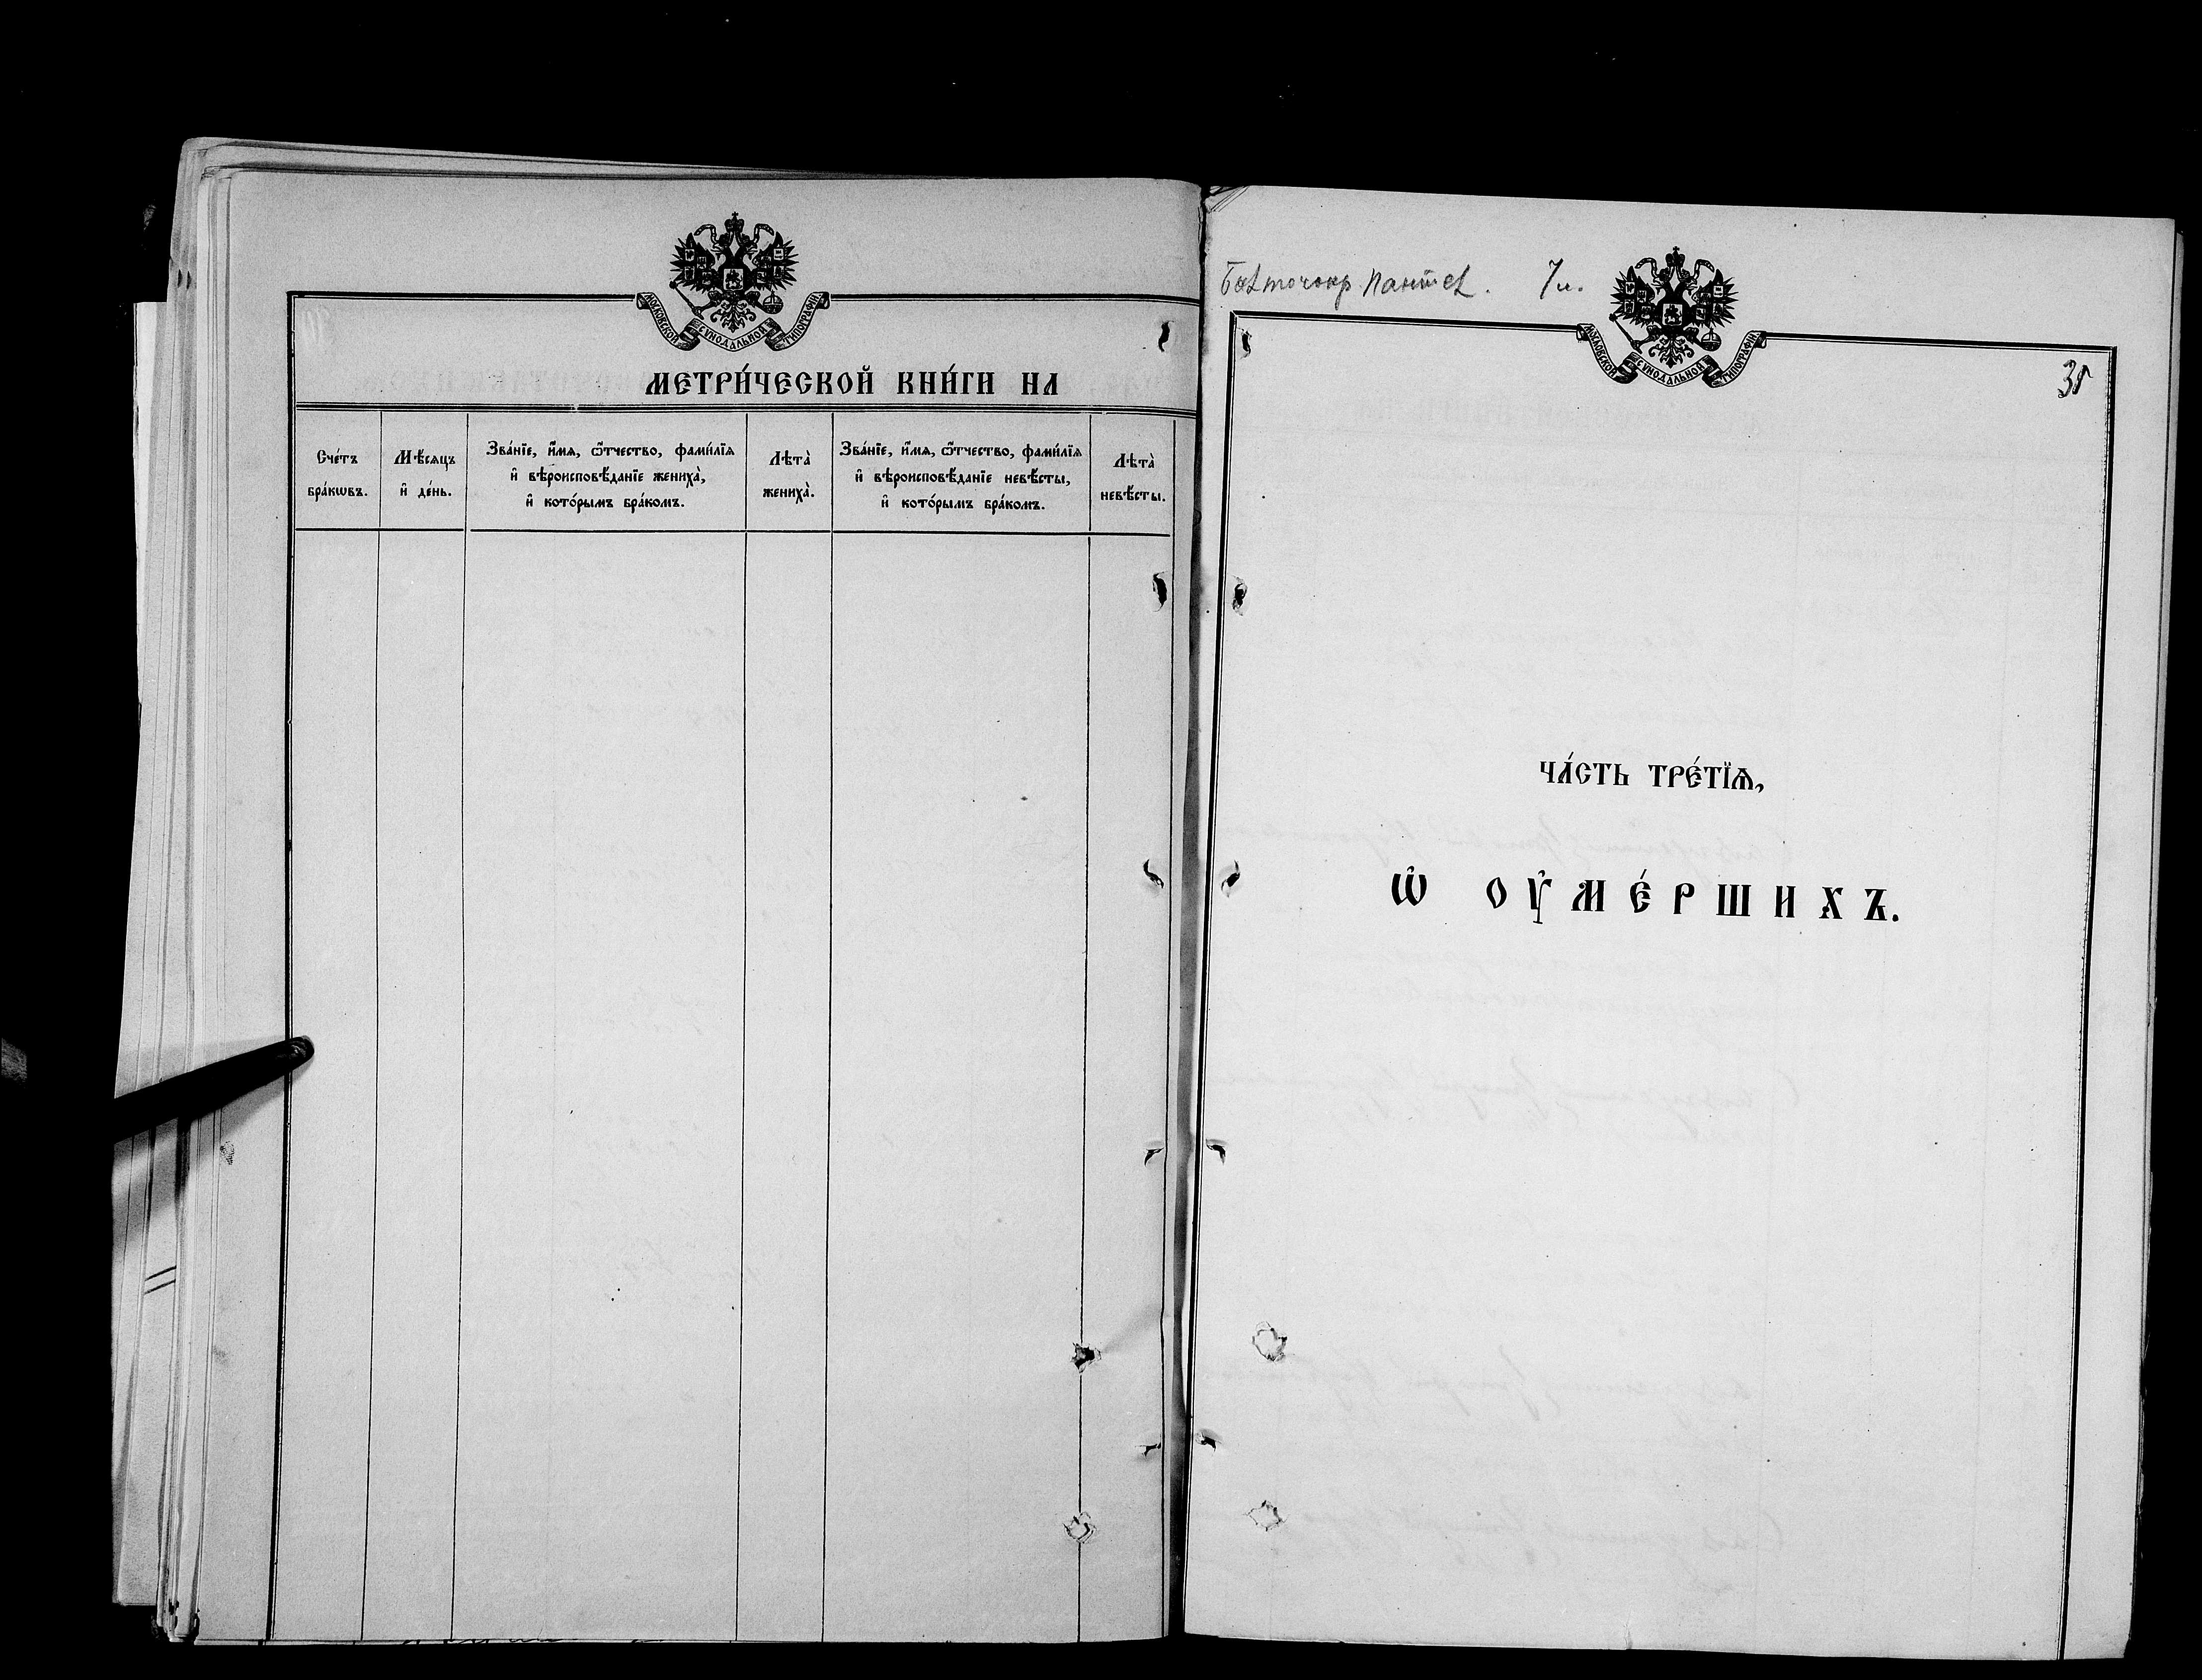 МОСКОВСКОЙ СѴНОДАЛЬНОЙ ТИПОГРАФІИ
МЕТРИ́ЧЕСКОЙ КНИ́ГИ НА
Сче́тъ бра́кѡвъ.
Мѣ́сяцъ и҆ де́нь.
Зва́нїе, и҆́мѧ, ѻ҆́тчество, фами́лїѧ
и҆ вѣроисповѣ́данїе жениха̀,
и҆ кото́рымъ бра́комъ.
Лѣта̀ жениха̀.
Зва́нїе, и҆́мѧ, ѻ҆́тчество, фами́лїѧ
и҆ вѣроисповѣ́данїе невѣ́сты,
и҆ кото́рымъ бра́комъ.
Лѣта̀ невѣ́сты.
7 л.
МОСКОВСКОЙ СѴНОДАЛЬНОЙ ТИПОГРАФІИ
ЧА́СТЬ ТРЕ́ТЇѦ,
Ѡ҆ ОУ҆МЕ́РШИХЪ.